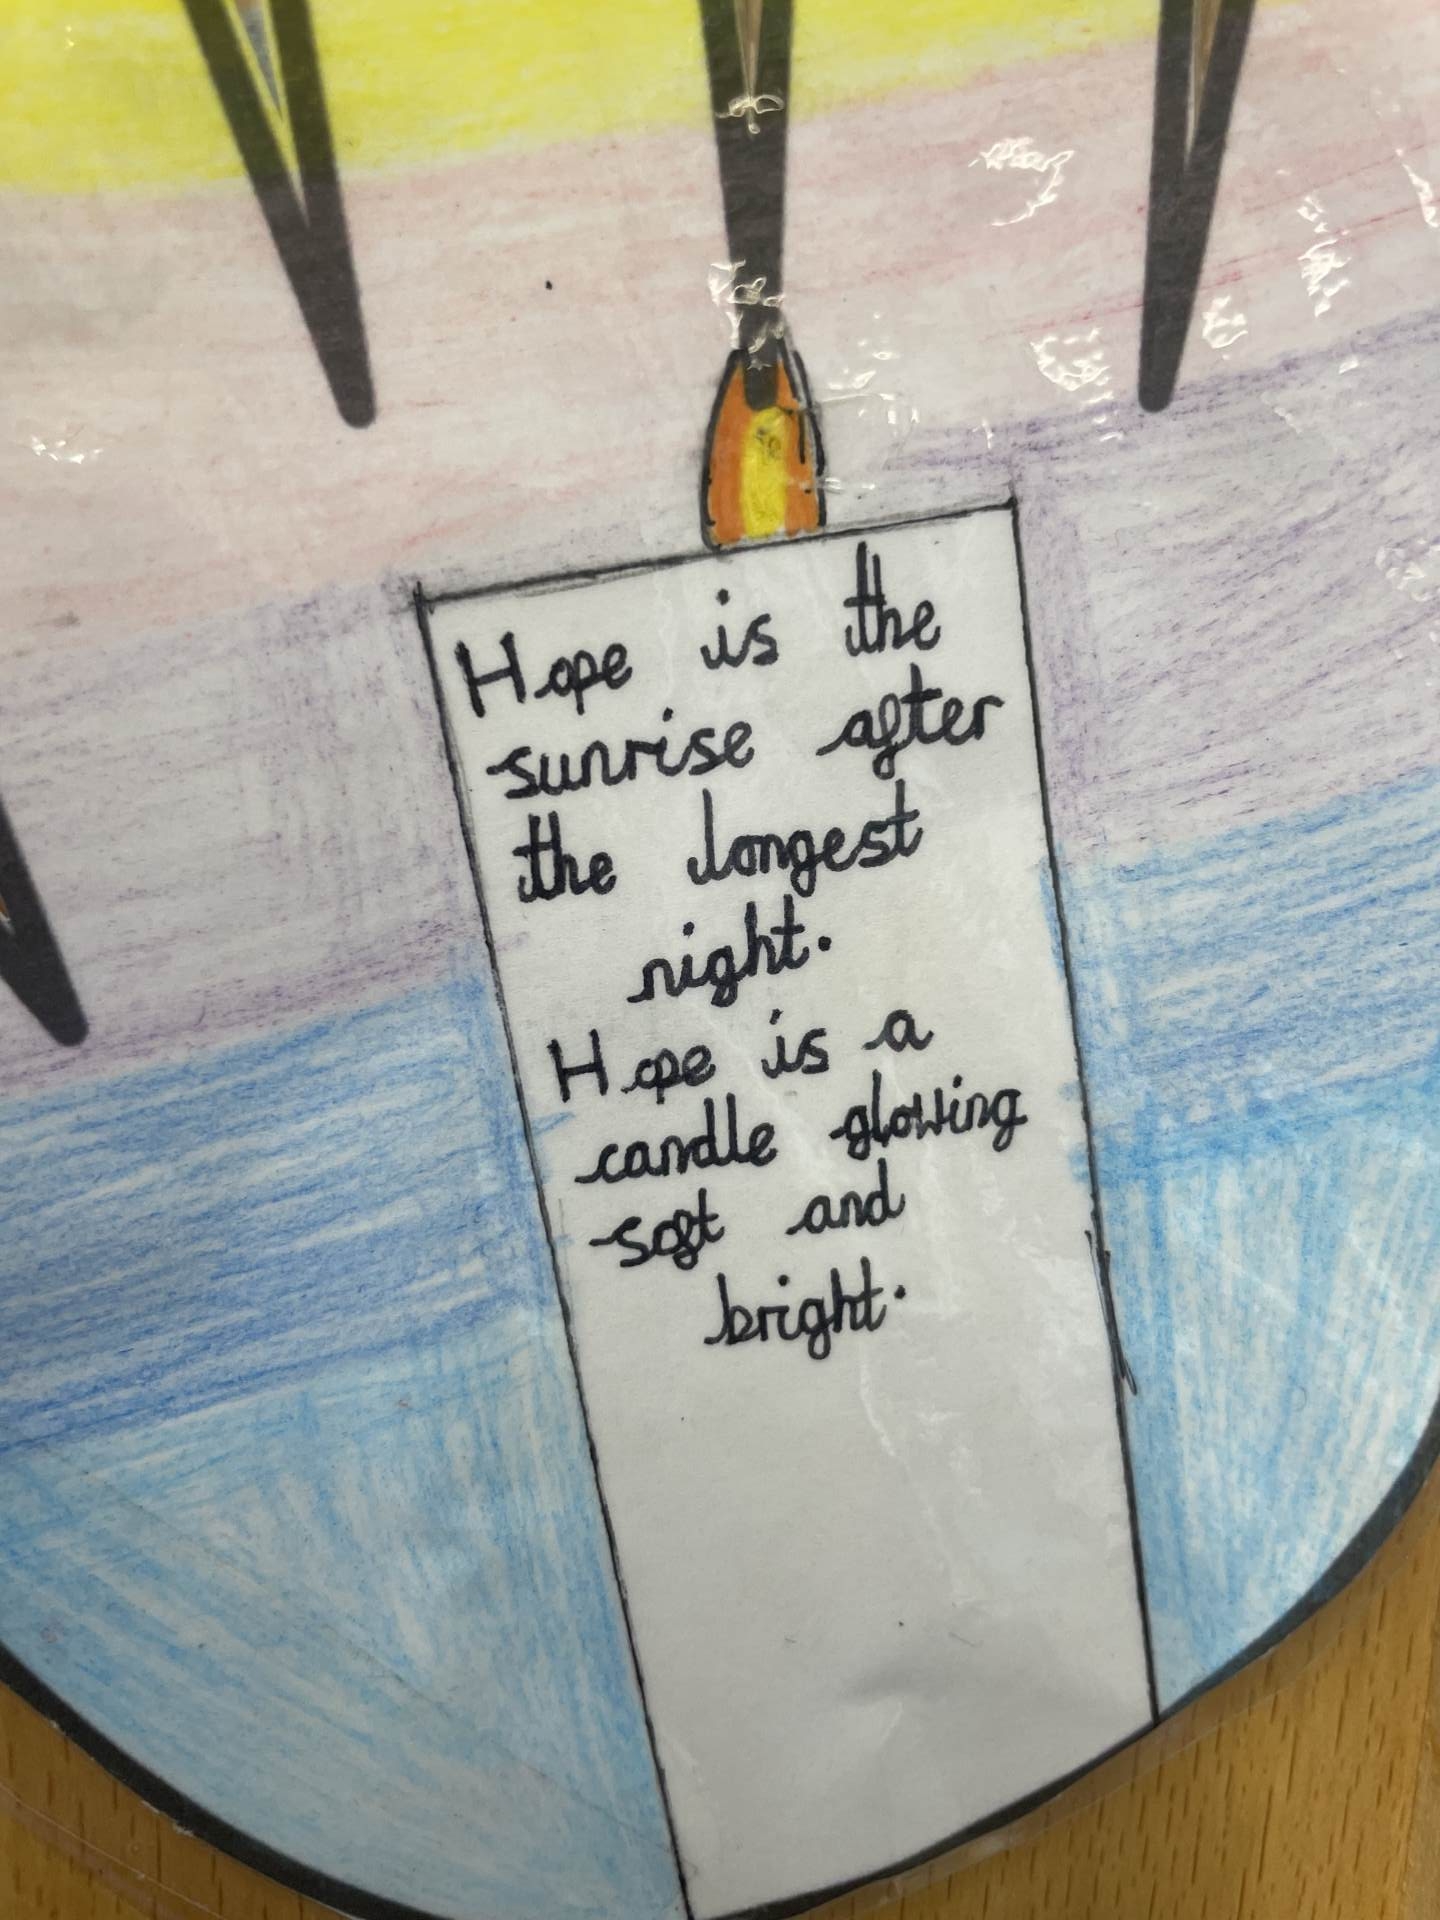 Hope is the
sunrise after
the longest
night.
Hope is a
candle glowing
soft and
bright.